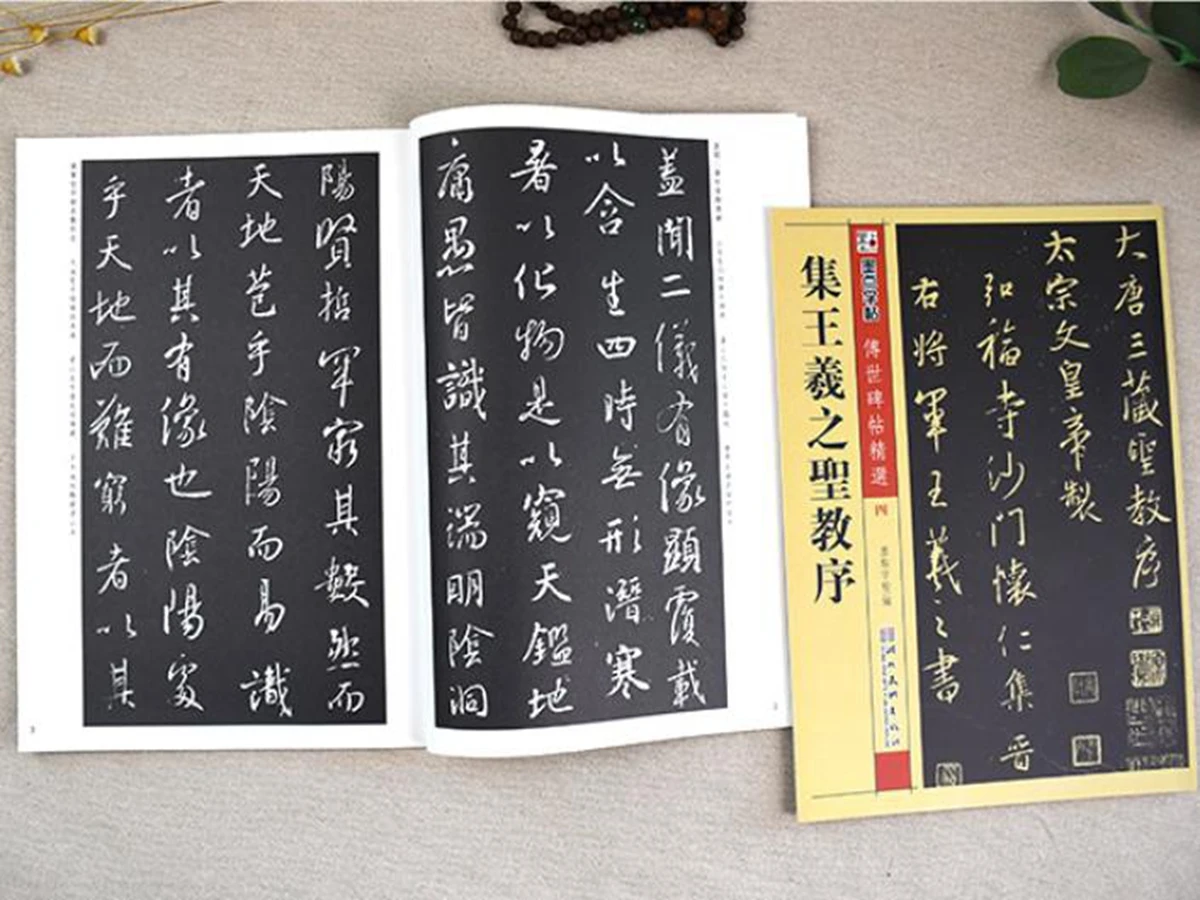 蓋聞二儀有像顯覆載
以含生四時無形潛寒
暑以化物是以窺天鑑地
庸愚皆識其端明陰洞
陽賢哲罕窮其數然而
天地苞乎陰陽而易識
者以其有像也陰陽處
乎天地而難窮者以其
3
大唐三藏聖教序
太宗文皇帝製
弘福寺沙門懷仁集晉
右將軍王羲之書
墨点字帖
傳世碑帖精選
四
集王羲之聖教序